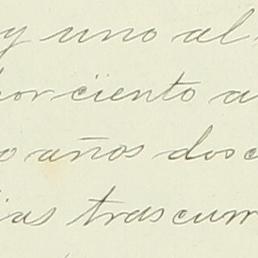 y uno al
por ciento a
o años dosc
ias trascurr